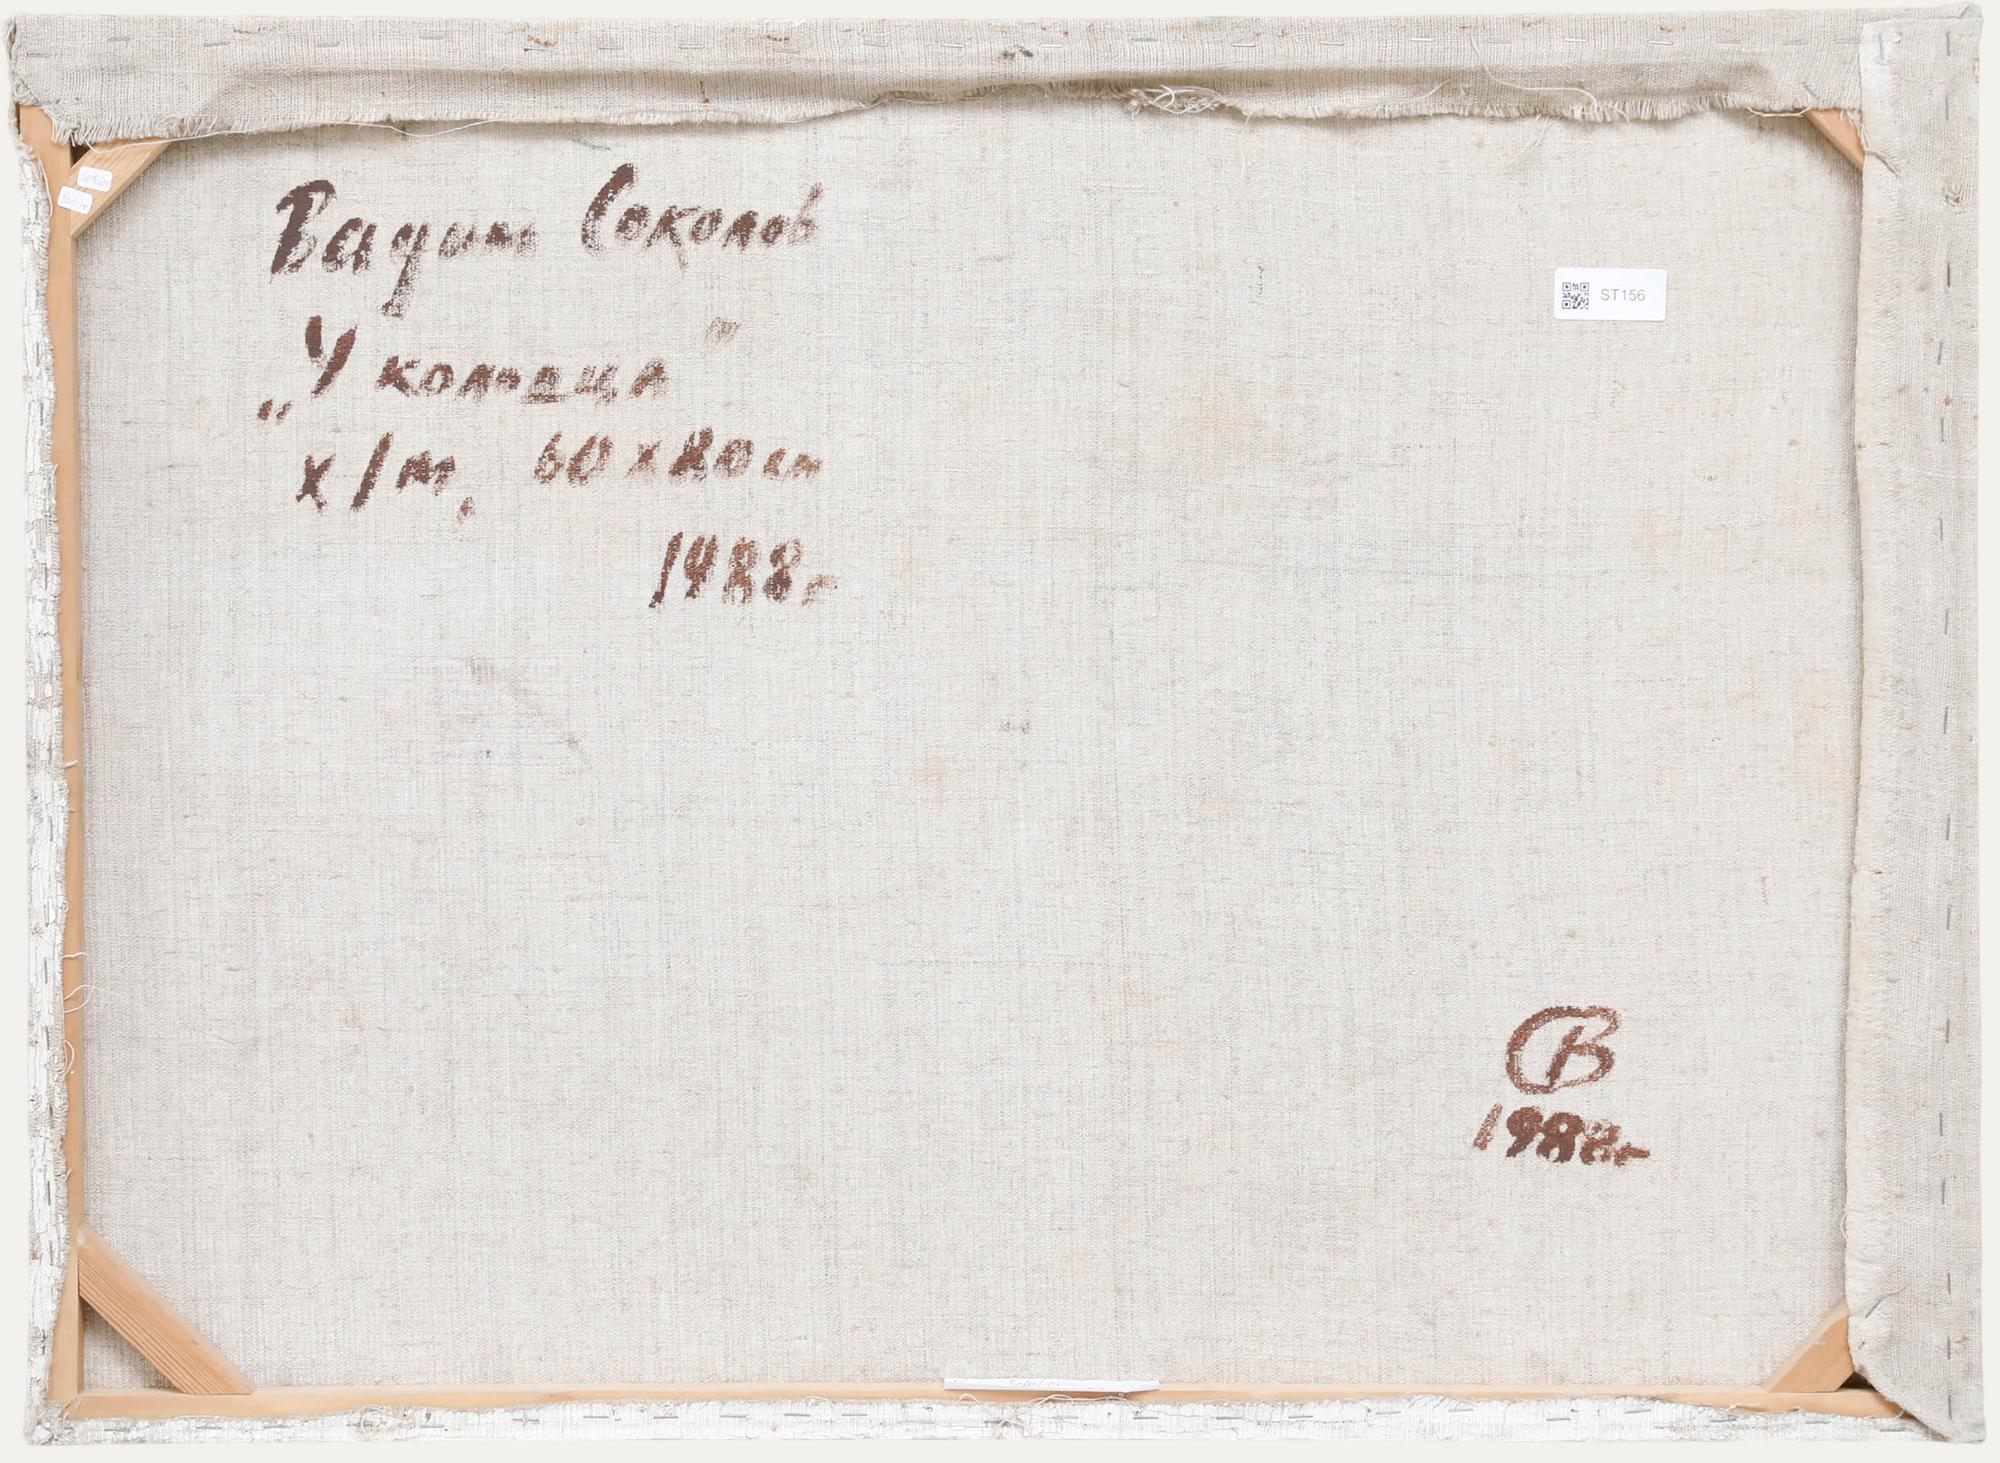 Вадим Соколов
„У колодца"
х/т, 60х80см
1988г
ST156
СВ
1988г